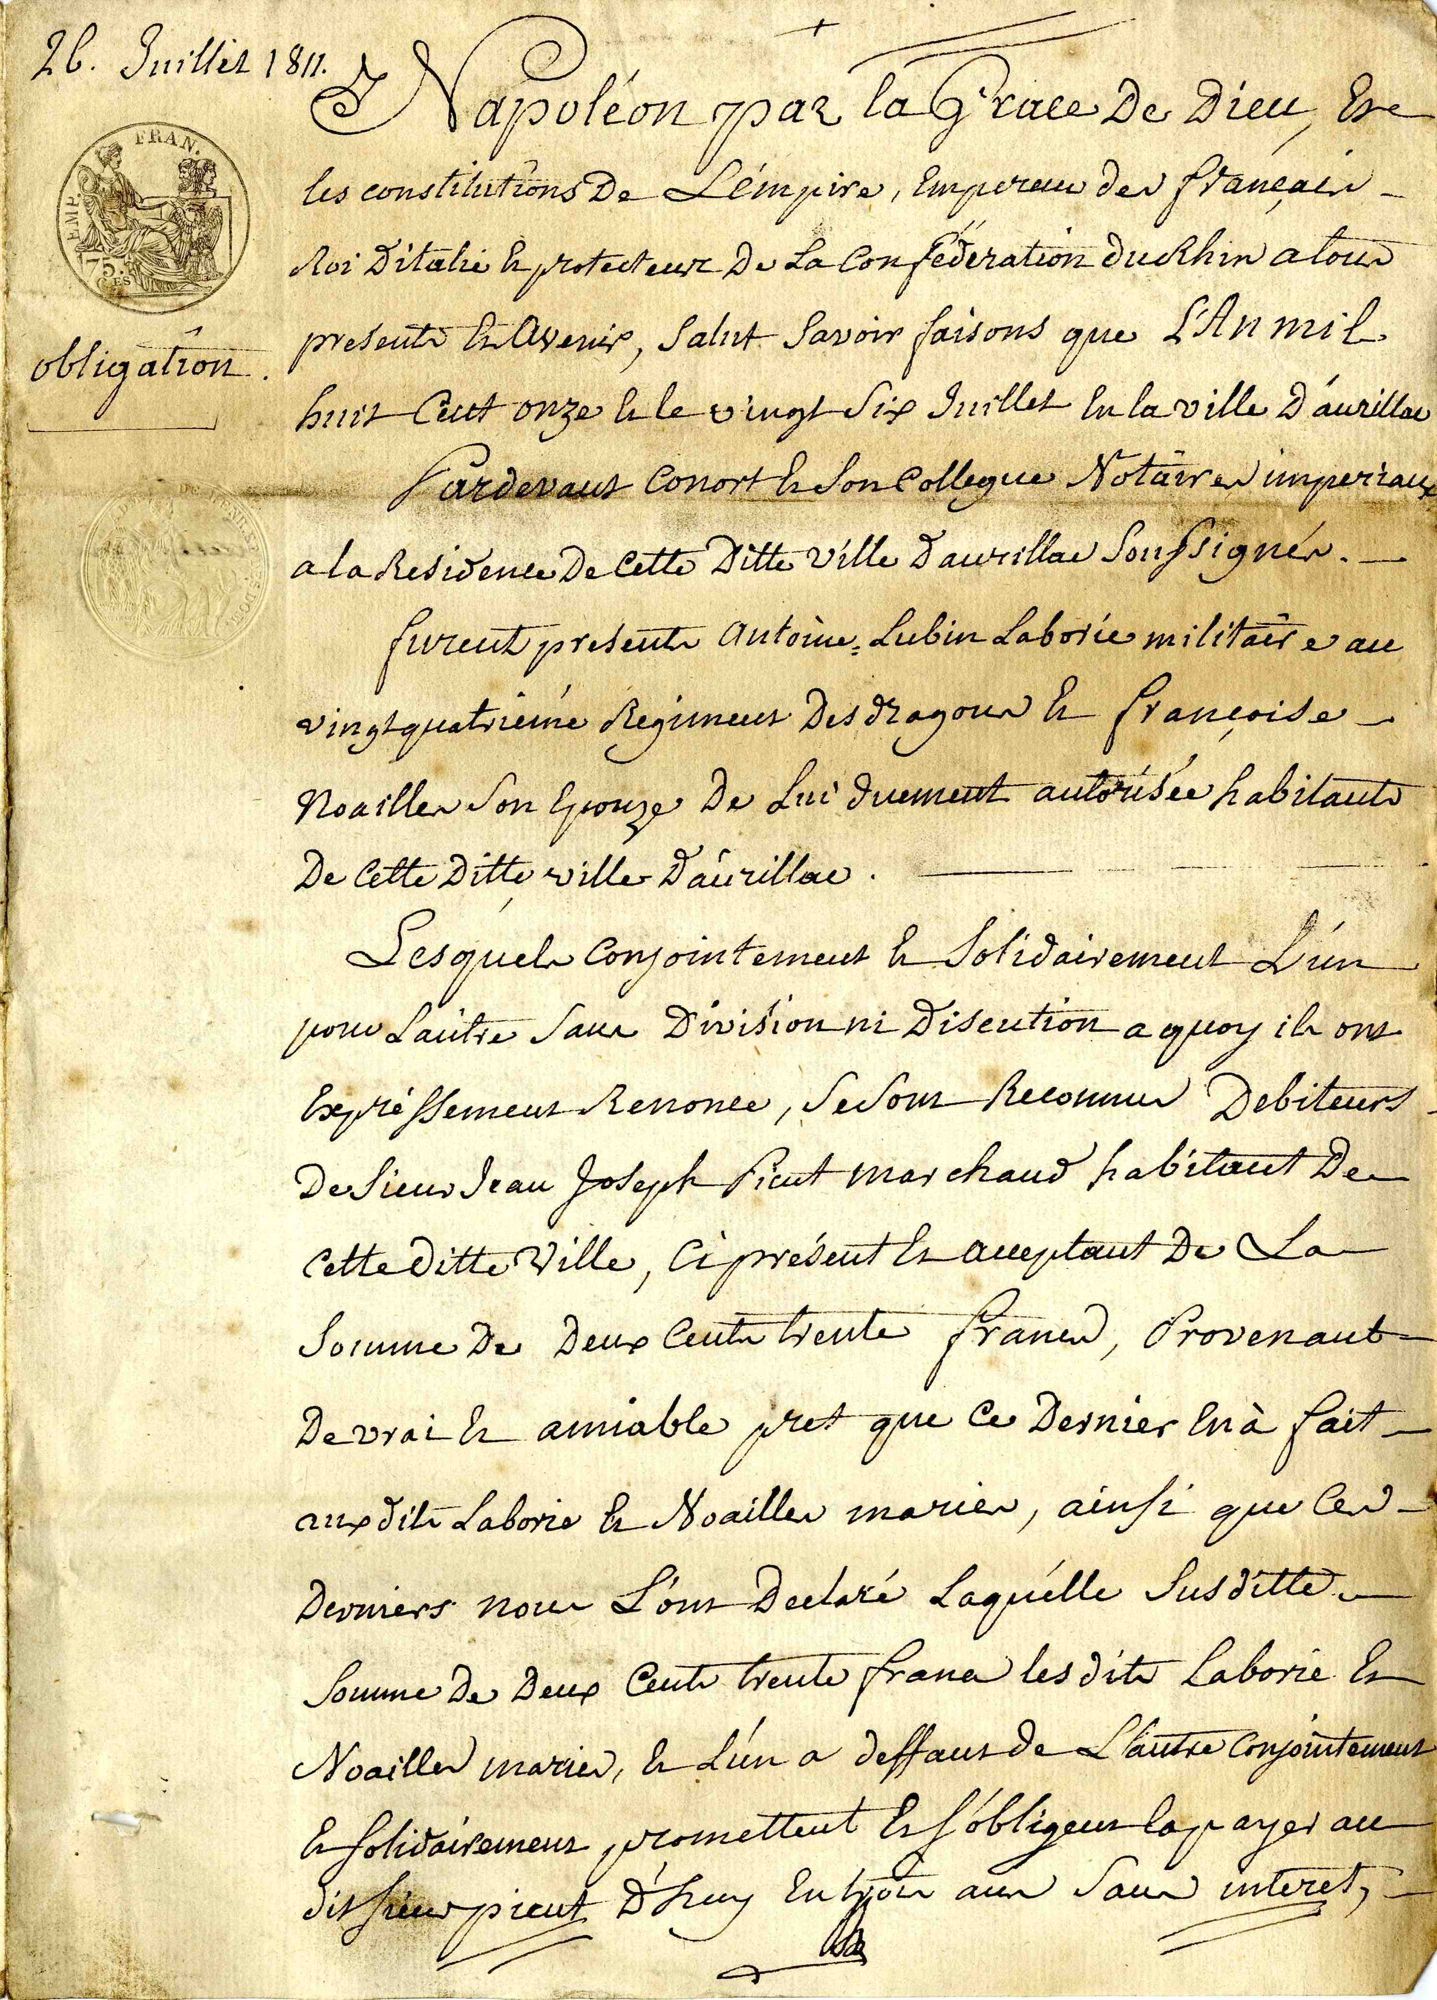 26. Juillet 1811.
EMP. FRAN.
75.
C.ES
obligation.
Napoléon par la Grace De Dieu, Et
les constitutions De L'émpire, Empereur des français
Roi D'italie Et protecteur De La Conféderation du Rhin a tous
presents Et Avenir, Salut Savoir faisons que L'An mil
huit Cent onze Et le vingt Six Juillet En la ville D'áurillac
Pardevant Conort Et Son Collegue Notaires imperiaux
a la Residence De Cette Ditte Ville D'aurillac Soussignés.
furent presents Antoine=Lubin Laborie militaire au
vingtquatriéme Regiment Des dragons Et françoise
Noailles Son Epouze De Lui duement autorisée habitants
De Cette Ditte ville D'áurillac.
Lesquels Conjointement Et Solidairement L'ún
pour Lautre Sans Division ni Discution a quoy ils ont
Expréssement Renoncé, Se Sont Reconnus Debiteurs
De Sieur Jean Joseph Picut marchand habitant De
Cette ditte Ville, Ci présent Et acceptant De La
Somme De Deux Cents trente francs, Provenant
De vrai Et amiable pret que Ce Dernier En à fait
aux dits Laborie Et Noailles mariés, ainsi que Ces
Derniers nous L'ónt Declaré Laquélle Susditte
Somme De Deux Cents trente francs les dits Laborie Et
Noailles mariés, Et L'ún a deffaut de L'autre Conjointement
Et Solidairement promettent Et S'óbligent la payer au
dit Sieur picut D'huy En trois ans Sans interet,